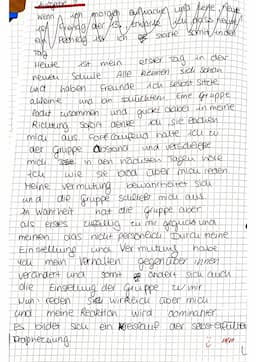 Wenn ich morgen aufwache und denke, heute
ist Freitag der 13, erwarte ich dass heute
ein Pechtag ist ich starte somit in den
Tag
Heute ist mein erster Tag in der
neuen Schule Alle kennen sich schon
und haben Freunde ich selbst sitze
alleine und bin schüchtern Eine Gruppe
hockt zusammen und guckt dabei in meine
Richtung Sofort denke ich sie lachen
mich aus. Fortlaufend halte ich zu
der Gruppe Abstand und verschließe
mich in den nächsten Tagen höre
ich wie sie über mich reden.
Meine Vermutung bewahrheitet sich
und die Gruppe schließt mich aus
In Wahrheit hat die Gruppe aber
als erstes zufällig zu mir geguckt und
meinen das nicht persönlich Durch meine
Einstellung und Vermutung habe
ich mein Verhalten gegenüber ihnen
verändert und somit ändert sich auch
die Einstellung der Gruppe zu mir
Nun reden sie wirklich über mich
und meine Reaktion wird dominanter
Es bildet sich ein Kreislauf der selbsterfüllten
Prophezeiung.